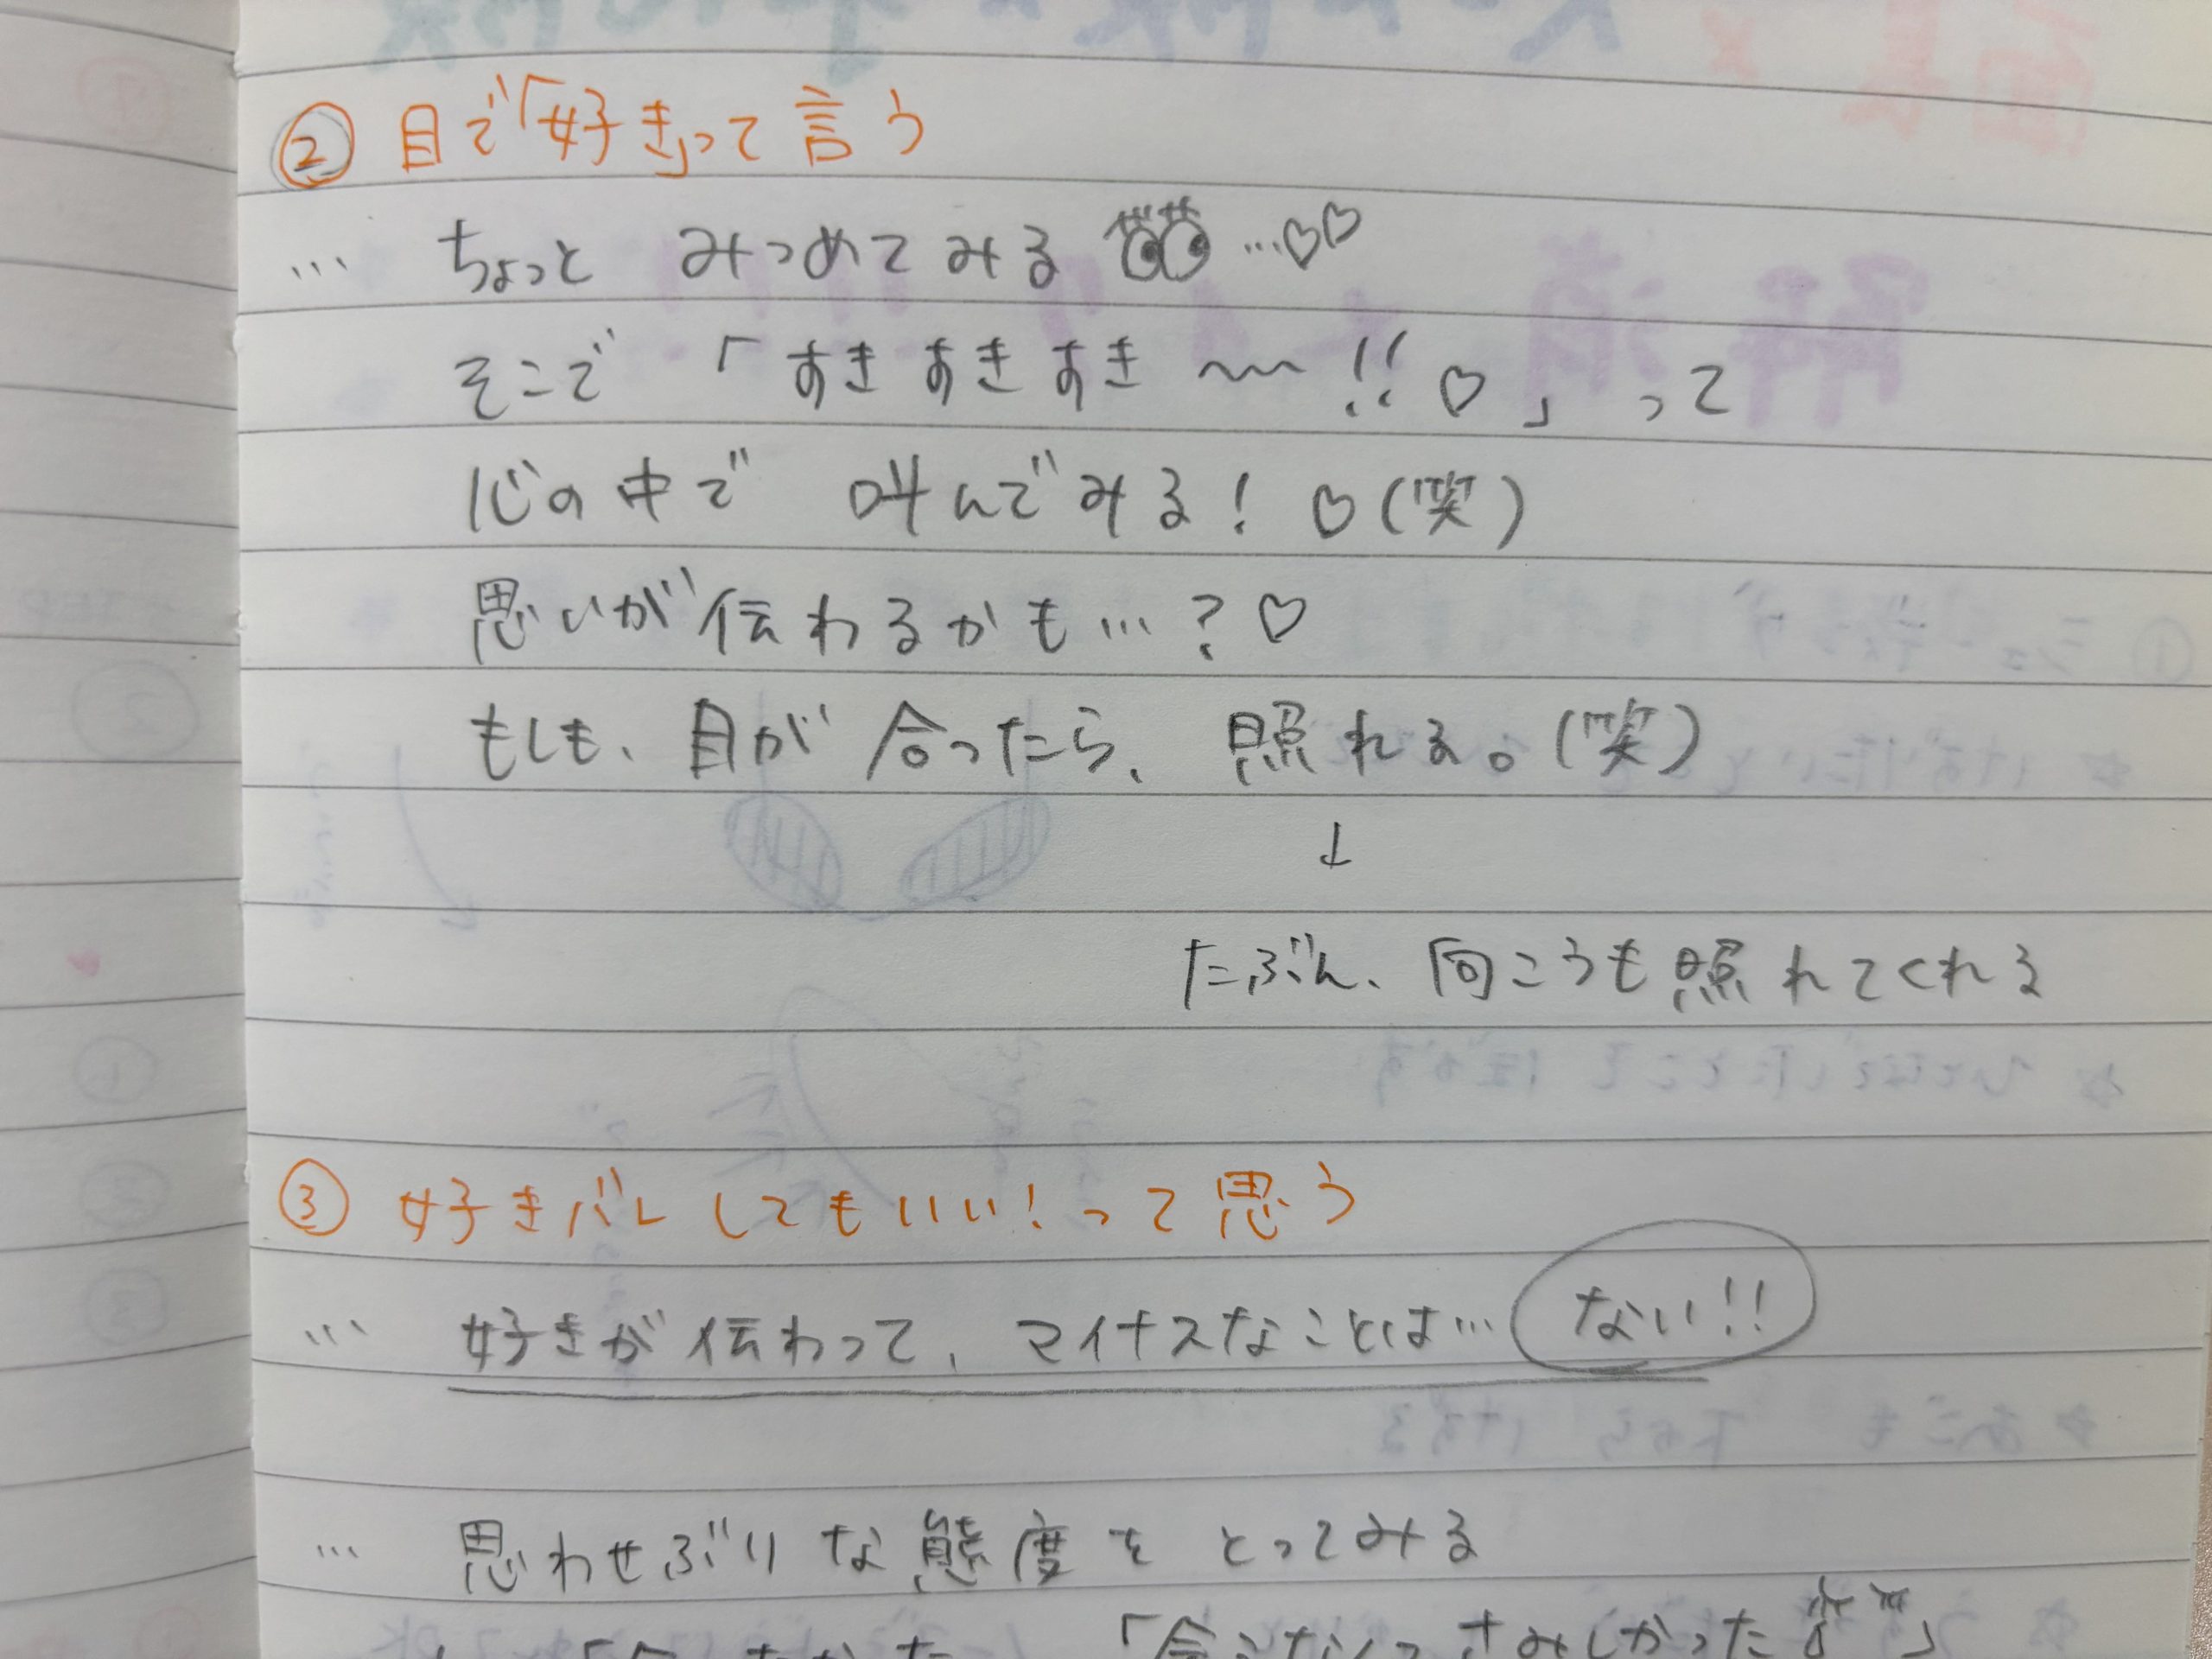 ② 目で「好き」って言う
… ちょっと みつめてみる …♡♡
そこで 「すきすきすき〜!!♡」って
心の中で 叫んでみる!♡(笑)
思いが伝わるかも…?♡
もしも、目が合ったら、照れる。(笑)
↓
たぶん、向こうも照れてくれる
③ 好きバレしてもいい!って思う
… 好きが伝わって、マイナスなことは… ない!!
… 思わせぶりな態度をとってみる
「会えなくてさみしかった」